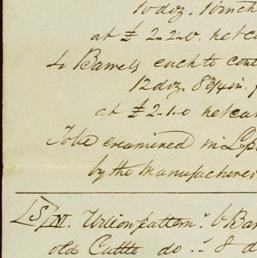 10 doz. 10 inch
at £ 2.2.0. net ca
4 Barrels each to cont
12 doz. 8 3/4 in.
at £ 2.1.0 net ca
To be examined in L'p
by the Manufacturer
Wilson pattern. 6 Bar
old Cuttle do. 8 d